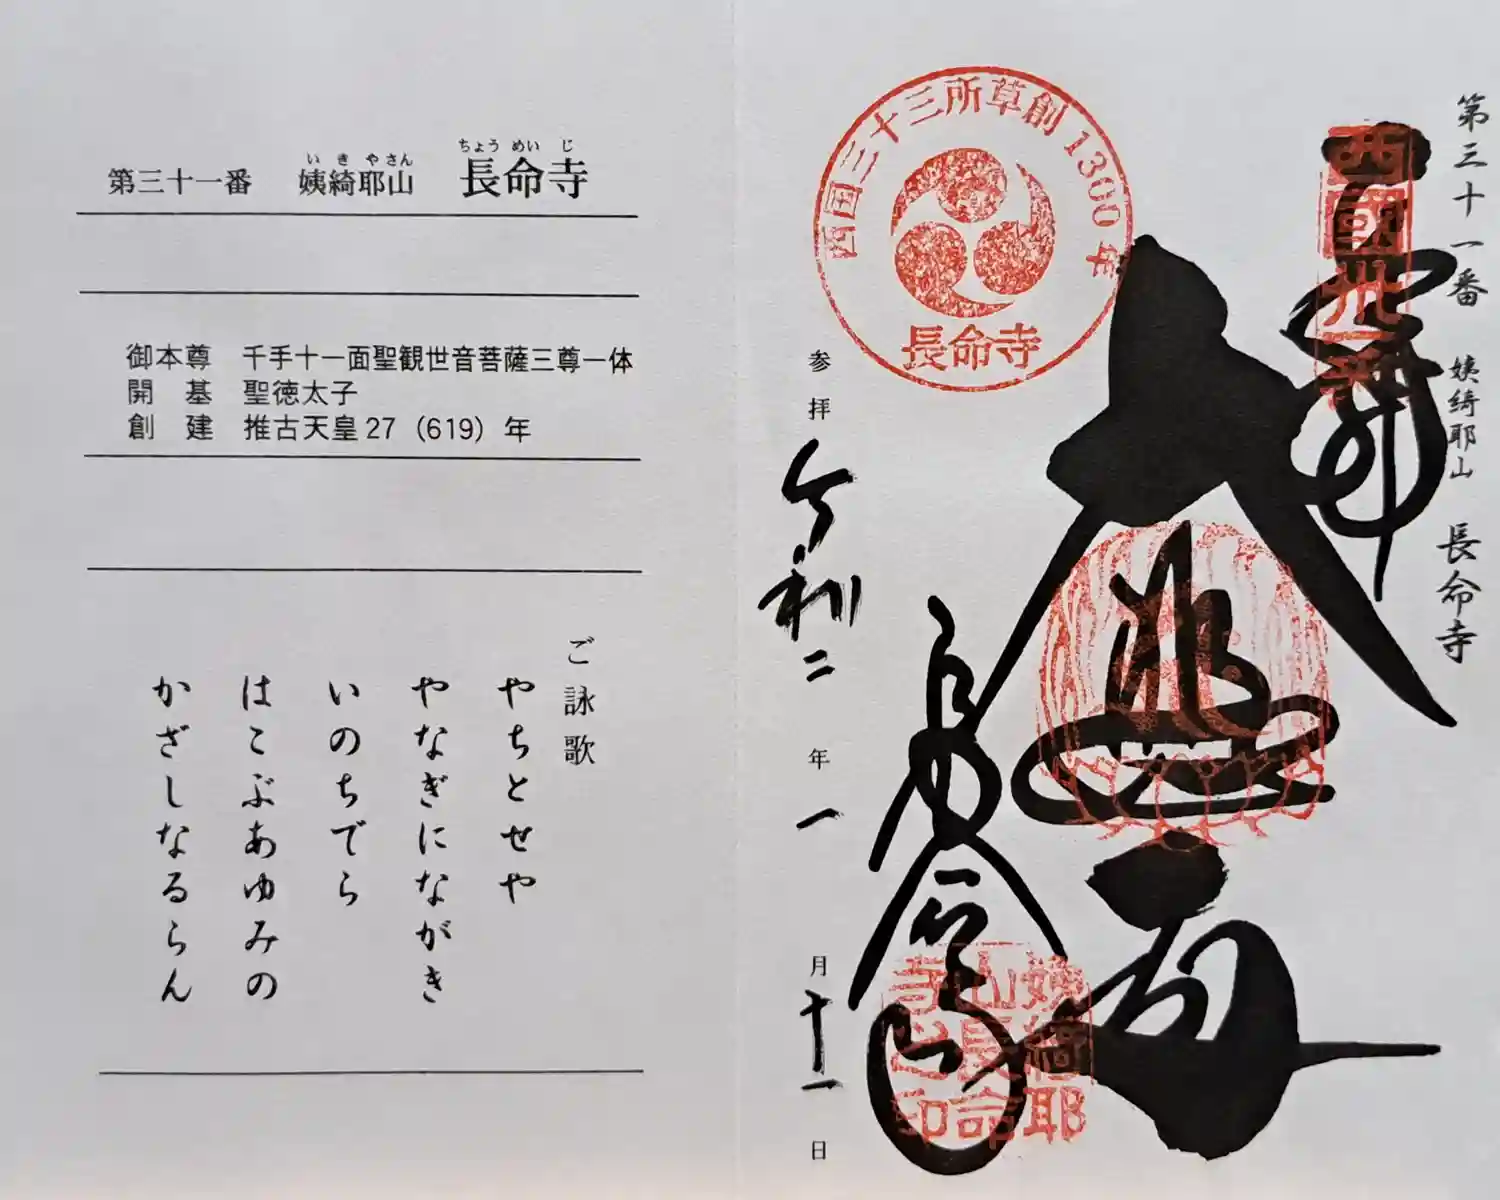 いきやさん ちょうめいじ
第三十一番 姨綺耶山 長命寺
御本尊 千手十一面聖観世音菩薩三尊一体
開 基 聖徳太子
創 建 推古天皇27（619）年
ご詠歌
やちとせや
やなぎにながき
いのちでら
はこぶあゆみの
かざしなるらん
第三十一番 姨綺耶山 長命寺
西國卅一番
奉拝
大悲殿
西国三十三所草創1300年
長命寺
姨綺耶
山長命
寺之印
長命寺
参拝 令和二年一月十一日